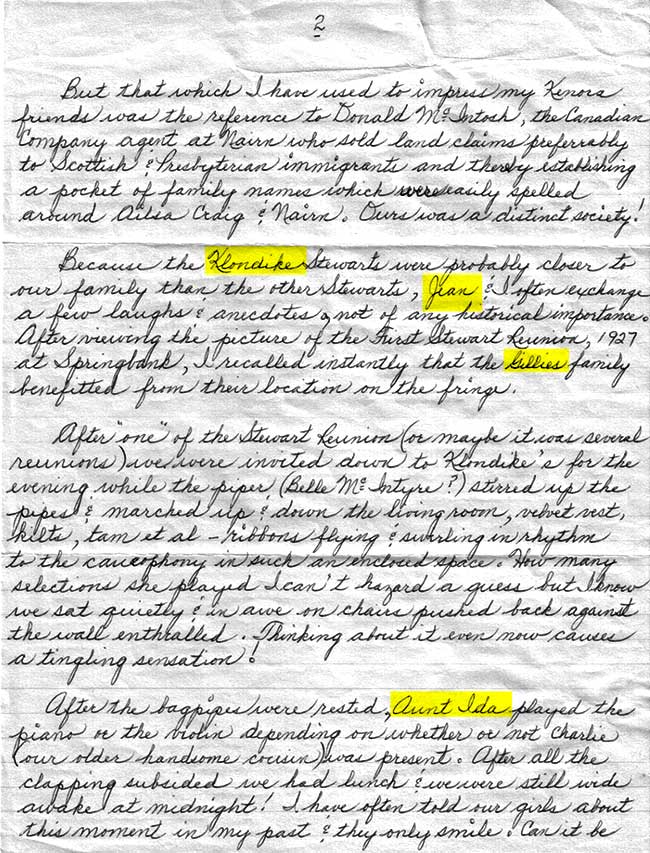 2
But that which I have used to impress my Kenora
friends was the reference to Donald McIntosh, the Canadian
Company agent at Nairn who sold land claims preferrably
to Scottish & Presbyterian immigrants and thereby establishing
a pocket of family names which were easily spelled
around Ailsa Craig & Nairn. Ours was a distinct society!
Because the Klondike Stewarts were probably closer to
our family than the other Stewarts, Jean & I often exchange
a few laughs & anecdotes, not of any historical importance.
After viewing the picture of the First Stewart Reunion, 1927
at Springbank, I recalled instantly that the Gillies family
benefitted from their location on the fringe.
After "one" of the Stewart Reunion (or maybe it was several
reunions) we were invited down to Klondike's for the
evening while the piper (Belle McIntyre?) stirred up the
pipes & marched up & down the livingroom, velvet vest,
kilts, tam et al - ribbons flying & swirling in rhythm
to the caucophony in such an enclosed space. How many
selections she played I can't hazard a guess but I know
we sat quietly & in awe on chairs pushed back against
the wall enthralled. Thinking about it even now causes
a tingling sensation!
After the bagpipes were rested, Aunt Ida played the
piano or the violin depending on whether or not Charlie
(our older handsome cousin) was present. After all the
clapping subsided we had lunch & we were still wide
awake at midnight! I have often told our girls about
this moment in my past & they only smile. Can it be